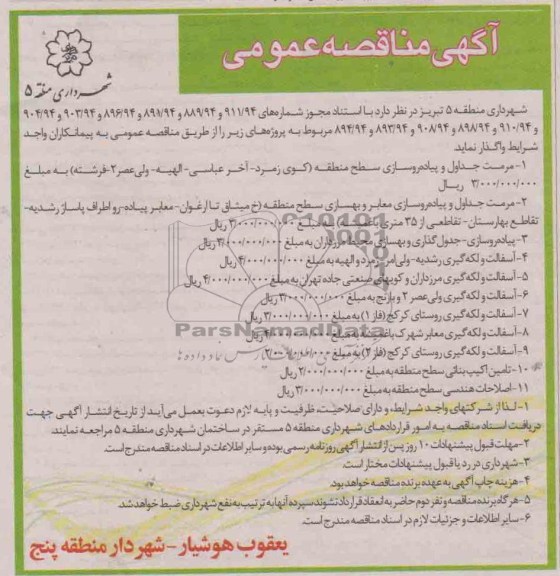 آگهی مناقصه عمومی
شهرداری منطقه ۵
شهرداری منطقه ۵ تبریز در نظر دارد با استناد مجوز شماره‌های ۹۱۱/۹۴ و ۸۸۹/۹۴ و ۸۹۱/۹۴ و ۸۹۶/۹۴ و ۹۰۳/۹۴ و ۹۰۴/۹۴
و ۹۱۰/۹۴ و ۸۹۸/۹۴ و ۹۰۸/۹۴ و ۸۹۳/۹۴ و ۸۹۴/۹۴ مربوط به پروژه‌های زیر را از طریق مناقصه عمومی به پیمانکاران واجد
شرایط واگذار نماید.
۱- مرمت جداول و پیاده‌روسازی سطح منطقه (کوی زمرد- آخر عباسی- الهیه- ولی‌عصر۲-فرشته) به مبلغ
۳/۰۰۰/۰۰۰/۰۰۰ ریال
۲- مرمت جداول و پیاده‌روسازی معابر و بهسازی سطح منطقه (خ میثاق تا ارغوان- معابر پیاده‌رو اطراف پاساژ رشدیه-
تقاطع بهارستان- تقاطعی از ۳۵ متری باغمیشه) به مبلغ ۳/۰۰۰/۰۰۰/۰۰۰ ریال
۳- پیاده‌روسازی- جدول‌گذاری و بهسازی محیط مرزداران به مبلغ ۳/۰۰۰/۰۰۰/۰۰۰ ریال
۴- آسفالت و لکه‌گیری رشدیه- ولی‌امر- زمرد و الهیه به مبلغ ۴/۰۰۰/۰۰۰/۰۰۰ ریال
۵- آسفالت و لکه‌گیری مرزداران و کویهای صنعتی جاده تهران به مبلغ ۴/۰۰۰/۰۰۰/۰۰۰ ریال
۶- آسفالت و لکه‌گیری ولی‌عصر ۲ و بارنج به مبلغ ۳/۰۰۰/۰۰۰/۰۰۰ ریال
۷- آسفالت و لکه‌گیری روستای کرکج (فاز ۱) به مبلغ ۳/۰۰۰/۰۰۰/۰۰۰ ریال
۸- آسفالت و لکه‌گیری معابر شهرک باغمیشه به مبلغ ۴/۰۰۰/۰۰۰/۰۰۰ ریال
۹- آسفالت و لکه‌گیری روستای کرکج (فاز ۲) به مبلغ
۱۰- تامین اکیپ بنائی سطح منطقه به مبلغ ۲/۰۰۰/۰۰۰/۰۰۰ ریال
۱۱- اصلاحات هندسی سطح منطقه به مبلغ ۳/۰۰۰/۰۰۰/۰۰۰ ریال
۱- لذا از شرکتهای واجد شرایط، و دارای صلاحیت، ظرفیت و پایه لازم دعوت بعمل می‌آید از تاریخ انتشار آگهی جهت
دریافت اسناد مناقصه به امور قراردادهای شهرداری منطقه ۵ مستقر در ساختمان شهرداری منطقه ۵ مراجعه نمایند.
۲- مهلت قبول پیشنهادات ۱۰ روز پس از انتشار آگهی روزنامه رسمی بوده و سایر اطلاعات در اسناد مناقصه مندرج است.
۳- شهرداری در رد یا قبول پیشنهادات مختار است.
۴- هزینه چاپ آگهی به عهده برنده مناقصه خواهد بود.
۵- هر گاه برنده مناقصه و نفر دوم حاضر به انعقاد قرارداد نشوند سپرده آنها به ترتیب به نفع شهرداری ضبط خواهد شد.
۶- سایر اطلاعات و جزئیات لازم در اسناد مناقصه مندرج است.
یعقوب هوشیار - شهردار منطقه پنج
ParsNamadData